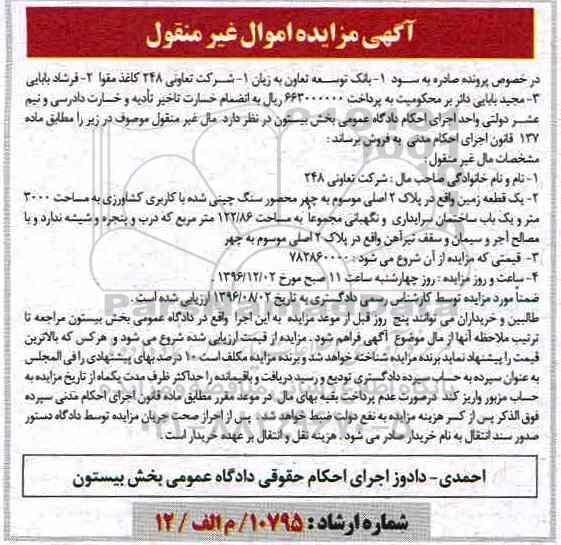 آگهی مزایده اموال غیر منقول
در خصوص پرونده صادره به سود ۱- بانک توسعه تعاون به زیان ۱- شرکت تعاونی ۲۴۸ کاغذ مقوا ۲- فرشاد بابایی
۳- مجید بابایی دائر بر محکومیت به پرداخت ۶۶۳۰۰۰۰۰۰ ریال به انضمام خسارت تاخیر تأدیه و خسارت دادرسی و نیم
عشر دولتی واحد اجرای احکام دادگاه عمومی بخش بیستون در نظر دارد مال غیر منقول موصوف در زیر را مطابق ماده
۱۳۷ قانون اجرای احکام مدنی به فروش برساند :
مشخصات مال غیر منقول :
۱- نام و نام خانوادگی صاحب مال : شرکت تعاونی ۲۴۸
۲- یک قطعه زمین واقع در پلاک ۲ اصلی موسوم به چهر محصور سنگ چینی شده با کاربری کشاورزی به مساحت ۳۰۰۰
متر و یک باب ساختمان سرایداری و نگهبانی مجموعا به مساحت ۱۲۲/۸۶ متر مربع که درب و پنجره و شیشه ندارد و با
مصالح آجر و سیمان و سقف تیرآهن واقع در پلاک ۲ اصلی موسوم به چهر
۳- قیمتی که مزایده از آن شروع می شود : ۷۸۲۸۶۰۰۰۰
۴- ساعت و روز مزایده : روز چهارشنبه ساعت ۱۱ صبح مورخ ۱۳۹۶/۱۲/۰۲
ضمناً مورد مزایده توسط کارشناس رسمی دادگستری به تاریخ ۱۳۹۶/۰۸/۰۲ ارزیابی شده است .
طالبین و خریداران می توانند پنج روز قبل از موعد مزایده به این اجرا واقع در دادگاه عمومی بخش بیستون مراجعه تا
ترتیب ملاحظه آنها از مال موضوع آگهی فراهم شود . مزایده از قیمت ارزیابی شده شروع می شود و هرکس که بالاترین
قیمت را پیشنهاد نماید برنده مزایده شناخته خواهد شد و برنده مزایده مکلف است ۱۰ درصد بهای پیشنهادی را فی المجلس
به عنوان سپرده به حساب سپرده دادگستری تودیع و رسید دریافت و باقیمانده را حداکثر ظرف مدت یکماه از تاریخ مزایده به
حساب مزبور واریز کند درصورت عدم پرداخت بقیه بهای مال در موعد مقرر مطابق ماده قانون اجرای احکام مدنی سپرده
فوق الذکر پس از کسر هزینه مزایده به نفع دولت ضبط خواهد شد . پس از احراز صحت جریان مزایده توسط دادگاه دستور
صدور سند انتقال به نام خریدار صادر می شود . هزینه نقل و انتقال بر عهده خریدار است .
احمدی- دادورز اجرای احکام حقوقی دادگاه عمومی بخش بیستون
شماره ارشاد : ۱۰۷۹۵/ م الف / ۱۲